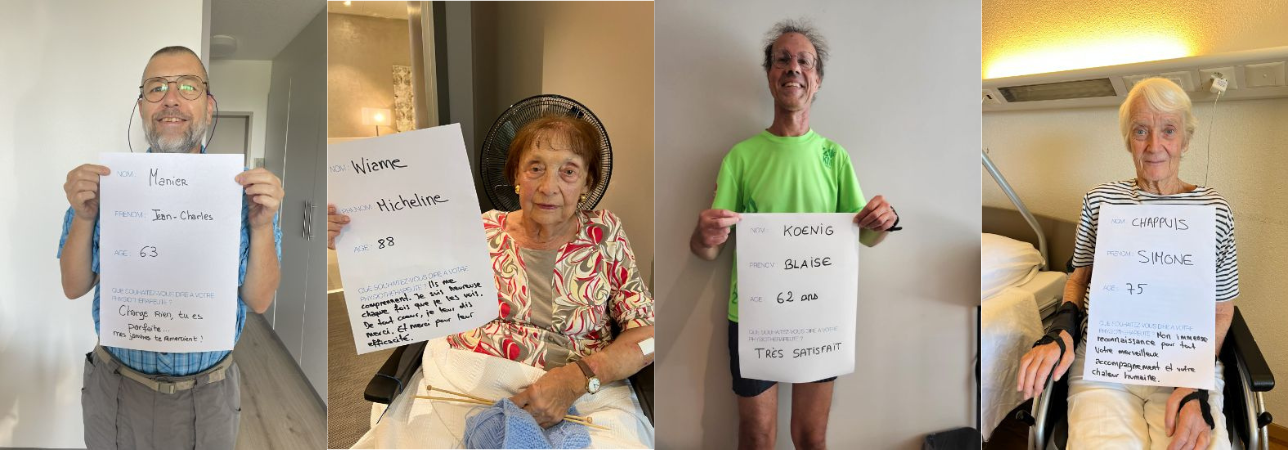 NOM: Manier
PRÉNOM: Jean-Charles
AGE: 63
QUE SOUHAITEZ-VOUS DIRE A VOTRE
PHYSIOTHERAPEUTE?
Change Rien, tu es
parfaite...
mes jambes te remercient !
NOM: Wianne
PRÉNOM: Micheline
AGE: 88
QUE SOUHAITEZ-VOUS DIRE A VOTRE
PHYSIOTHERAPEUTE? Ils me
comprennent. Je suis heureuse
chaque fois que je les vois.
De tout coeur, je leur dis
merci. Et merci pour leur
efficacité.
NOM: KOENIG
PRÉNOM: BLAISE
AGE: 62 ans
QUE SOUHAITEZ-VOUS DIRE A VOTRE
PHYSIOTHERAPEUTE?
TRÈS SATISFAIT
NOM: CHAPPUIS
PRÉNOM: SIMONE
AGE: 75
QUE SOUHAITEZ-VOUS DIRE A VOTRE
PHYSIOTHERAPEUTE? Mon immense
reconnaissance pour tout
votre merveilleux
accompagnement et votre
chaleur humaine.